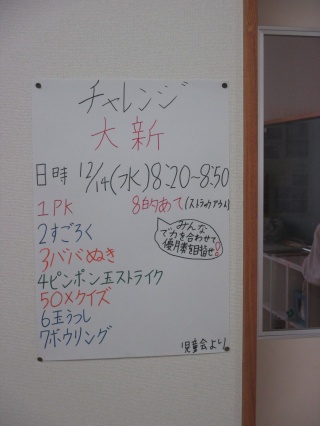 チャレンジ
大新
日時 12/14(水)8:20~8:50
1PK 8的あて(ストラックアウト)
2すごろく
3ババぬき
4ピンポン玉ストライク
5○×クイズ
6玉うつし
7ボウリング
みんな
で力を合わせて
優勝を目指せ!
児童会より